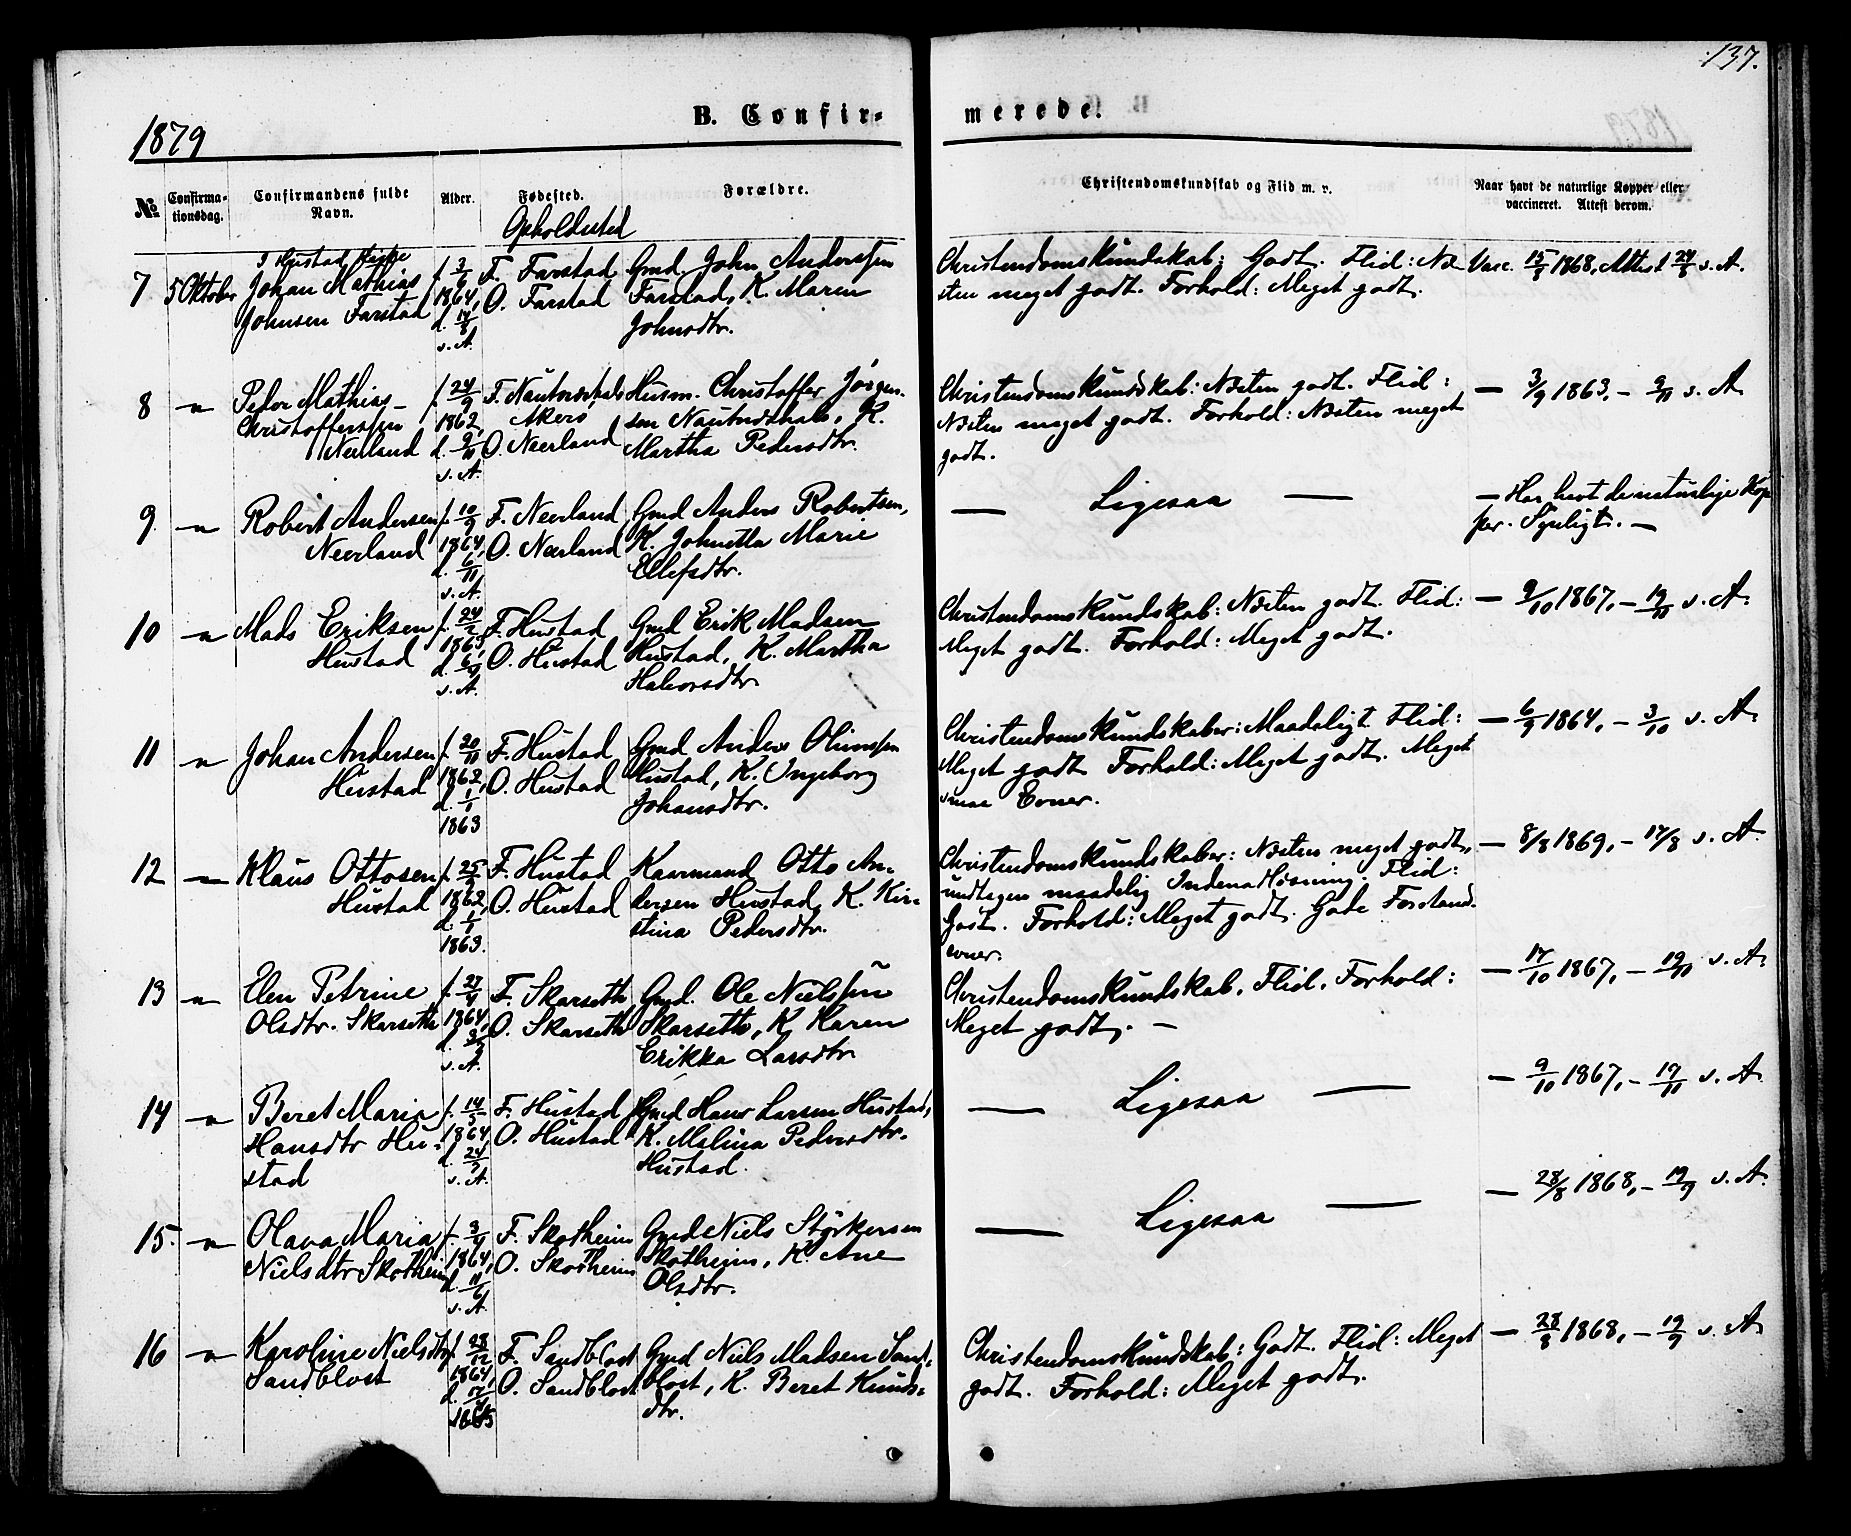 137.
1879
B. Confir-
merede.
№
Confirma-
tionsdag.
Confirmandens fulde
Navn.
Alder.
Fødested.
Opholdsted
Forældre.
Christendomskundskab og Flid m. v.
Naar havt de naturlige Kopper eller
vaccineret. Attest derom.
I Hustad Kirke
7 5 Oktober Johan Mathias f. 3/6 F. Farstad Gmd. John Anderssen Christendomskundskab: Godt. Flid: Næ Vacc. 15/9 1868, Attest 24/9 s. A.
Johnsen Farstad 1864, O. Farstad Farstad, K. Maren sten meget godt. Forhold: Meget godt.
d. 14/8 Johnsdtr.
s. A.
8 -"- Peder Mathias f. 24/9 F. Nautnesthals Husm. Christoffer Jørgen- Christendomskundskab: Næsten godt. Flid: — 3/9 1863, - 9/11 s. A
Christofferssen 1862, Akerø sen Nautnesthals, K. Næsten meget godt. Forhold: Næsten meget
Neerland d. 9/11 O. Neerland Martha Pedersdtr. godt.
s. A.
9 -"- Robert Andersen f. 10/9 F. Neerland Gmd Anders Robertsen, — Ligesaa — — Har havt de naturlige Kop
Neerland 1864, O. Neerland K. Johnetta Marie per. Synligt. —
d. 6/11 Ellefsdtr.
s. A.
10 -"- Mads Eriksen f. 24/2 F. Hustad Gmd Erik Madsen Christendomskundskab: Næsten godt. Flid: — 9/10 1867, - 19/11 s. A.
Hustad O. Hustad Hustad, K. Martha Meget godt. Forhold: Meget godt.
Halvorsdtr
s. A.
11 -"- Johan Andersen f. 20/11 F. Hustad Gmd Anders Christendomskundskaber: Maadeligt. Flid: — 6/9 1864, - 3/10 s. A.
Hustad 1862, O. Hustad Hustad, K. Ingeborg Meget godt Forhold: Meget godt. Meget
d. 1/1 Johansdtr. smaa Evner.
1863
12 — Klaus Ottosen f. 25/9 F. Hustad Kaarmand Otto An- Christendomskundskaber: Næsten meget godt, — 8/8 1869, - 17/8 s. A
Hustad 1862, O. Hustad dersen Hustad, K. Kir- undtagen maadelig Indenadlæsning. Flid:
d. 1/1 stina Pedersdtr. Godt. Forhold: Meget godt. Gode Forstand-
1863. evner.
13 -"- Elen Petrine f. 27/4 F. Skarseth Gmd. Ole Nielssen Christendomskundskab, Flid, Forhold: — 17/10 1867, - 19/11 s. A.
Olsdtr. Skarseth 1864, O. Skarseth Skarseth, K. Karen Meget godt. —
Erikka Larsdtr
s. A.
14 -"- Beret Maria f. 14/5 F. Hustad Gmd Hans Larsen Hustad, — Ligesaa — — 9/10 1867, - 19/11 s. A
Hansdtr Hu- 1864 O. Hustad K. Malina Pedersdtr.
stad d. 24/7 Hustad.
s. A.
15. -"- Olava Maria F. Skotheim Gmd Niels Størkersen — Ligesaa — — 28/8 1868, - 19/9 s. A.
Nielsdtr Skotheim 1864, O. Skotheim Skotheim, K. Ane
d. 11/6 Olsdtr.
s. A.
16 -"- Karoline Nielsdtr f. 28/12 F. Sandblost Gmd Niels Madsen Sand- Christendomskundskab: Godt. Flid: Meget — 28/8 1868, - 19/9 s. A.
Sandblost 1864, O. Sandblost blost, K. Beret Knuds- godt. Forhold: Meget godt.
dtr.
1865